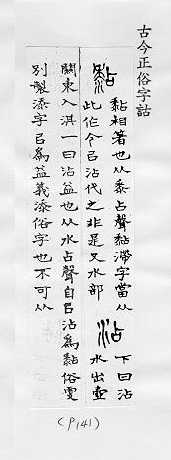 古今正俗字詁
黏
黏相著也从黍占聲黏滯字當从
此作今㠯沾代之非是又水部
沾
下曰沾
水出壺
關東入淇一曰沾益也从水占聲自㠯沾為黏俗更
別製添字㠯為益義添俗字也不可从
(P141)